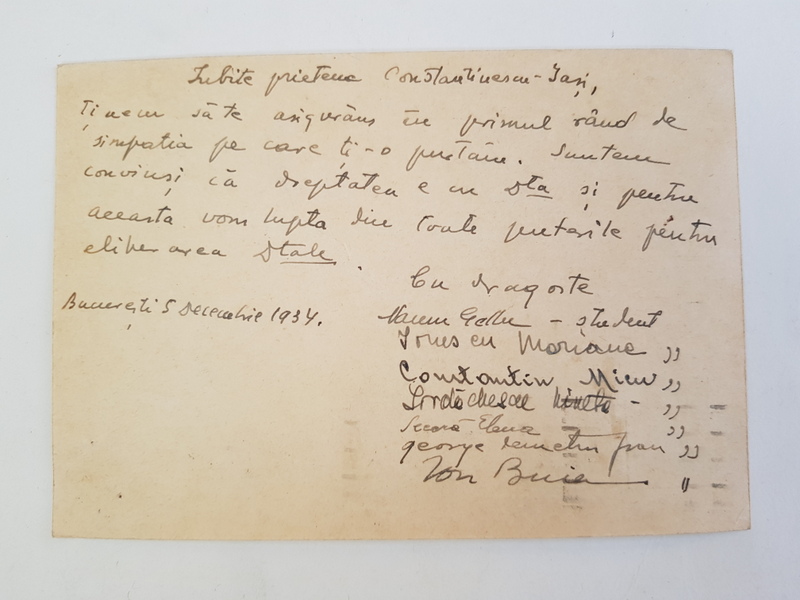 Iubite prietene Constantinescu-Iași,
Ținem să te asigurăm în primul rând de
simpatia pe care ți-o purtăm. Suntem
convinși că dreptatea e cu Dta și pentru
aceasta vom lupta din toate puterile pentru
eliberarea Dtale.
Cu dragoste
București 5 Decembrie 1934.
- student
Ionescu Mariana ,,
Constantin Micu ,,
- ,,
Elena ,,
George Demetru ,,
Ion Buia ,,